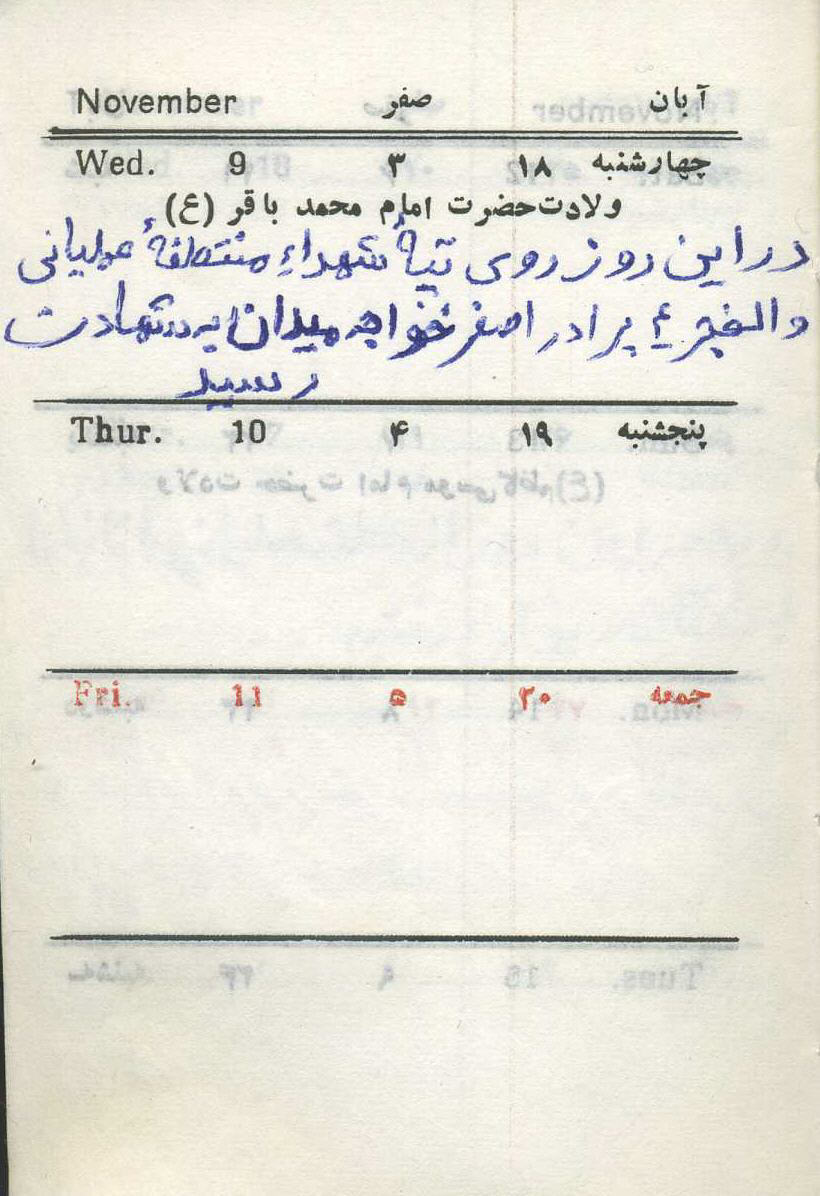 November صفر آبان
Wed. 9 ۳ ۱۸ چهارشنبه
ولادت حضرت امام محمد باقر (ع)
در این روز روی تپهٔ شهداء منتطقهٔ عملیاتی
والفجر ۴ برادر اصغر خواجه میدان به شهادت
رسید
Thur. 10 ۴ ۱۹ پنجشنبه
Fri. 11 ۵ ۲۰ جمعه